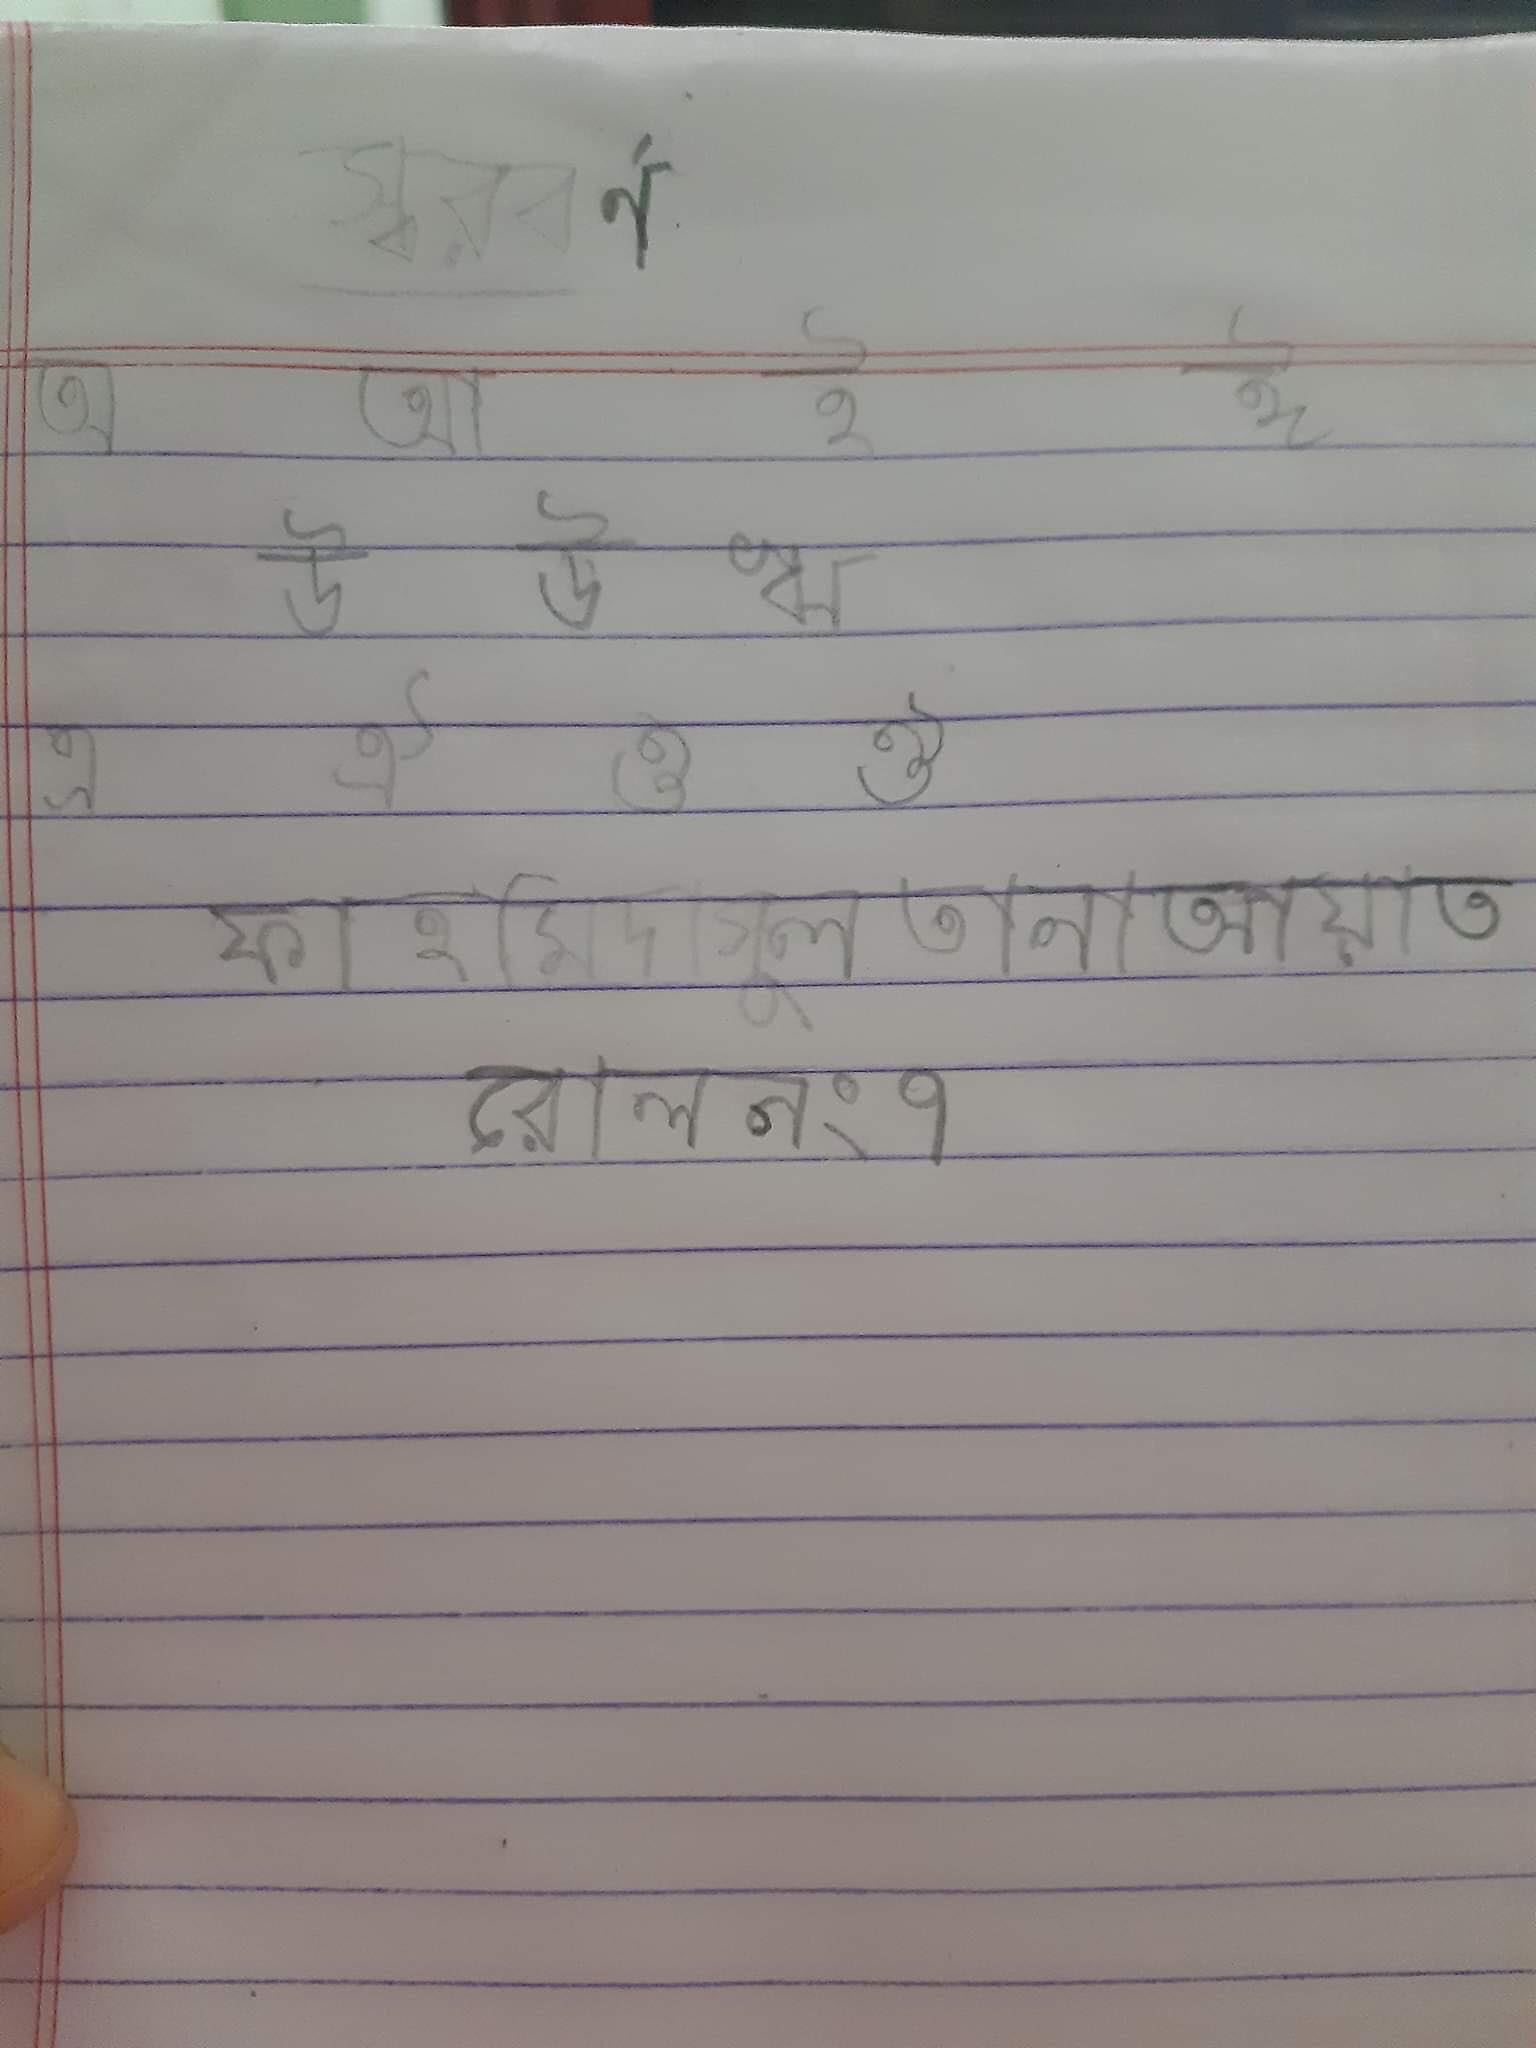 স্বরবর্ণ
অ আ ই ঈ
উ ঊ ঋ
এ ঐ ও ঔ
ফাহমিদা সুলতানা আয়াত
রোল নং ৭